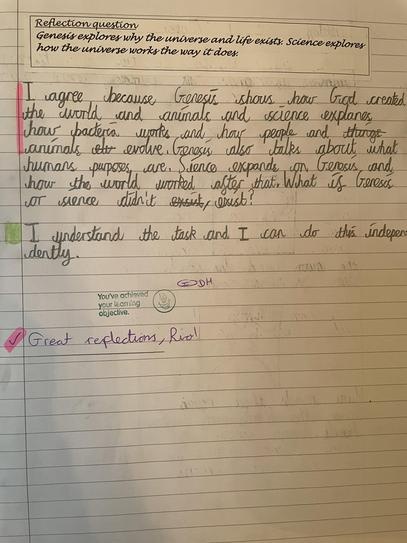 Reflection question
Genesis explores why the universe and life exists. Science explores
how the universe works the way it does.
I agree because Genesis shows how God created
the world and animals and science explanes
how bacteria works and how people and
animals evolve. Genesis also talks about what
humans purposes are. Sience expands on Genesis, and
how the world worked after that. What if Genesis
or sience didn't exsist, exist?
I understand the task and I can do this indepen
dently.
DH
You've achieved
your learning
objective.
✓ Great reflections, Rio!